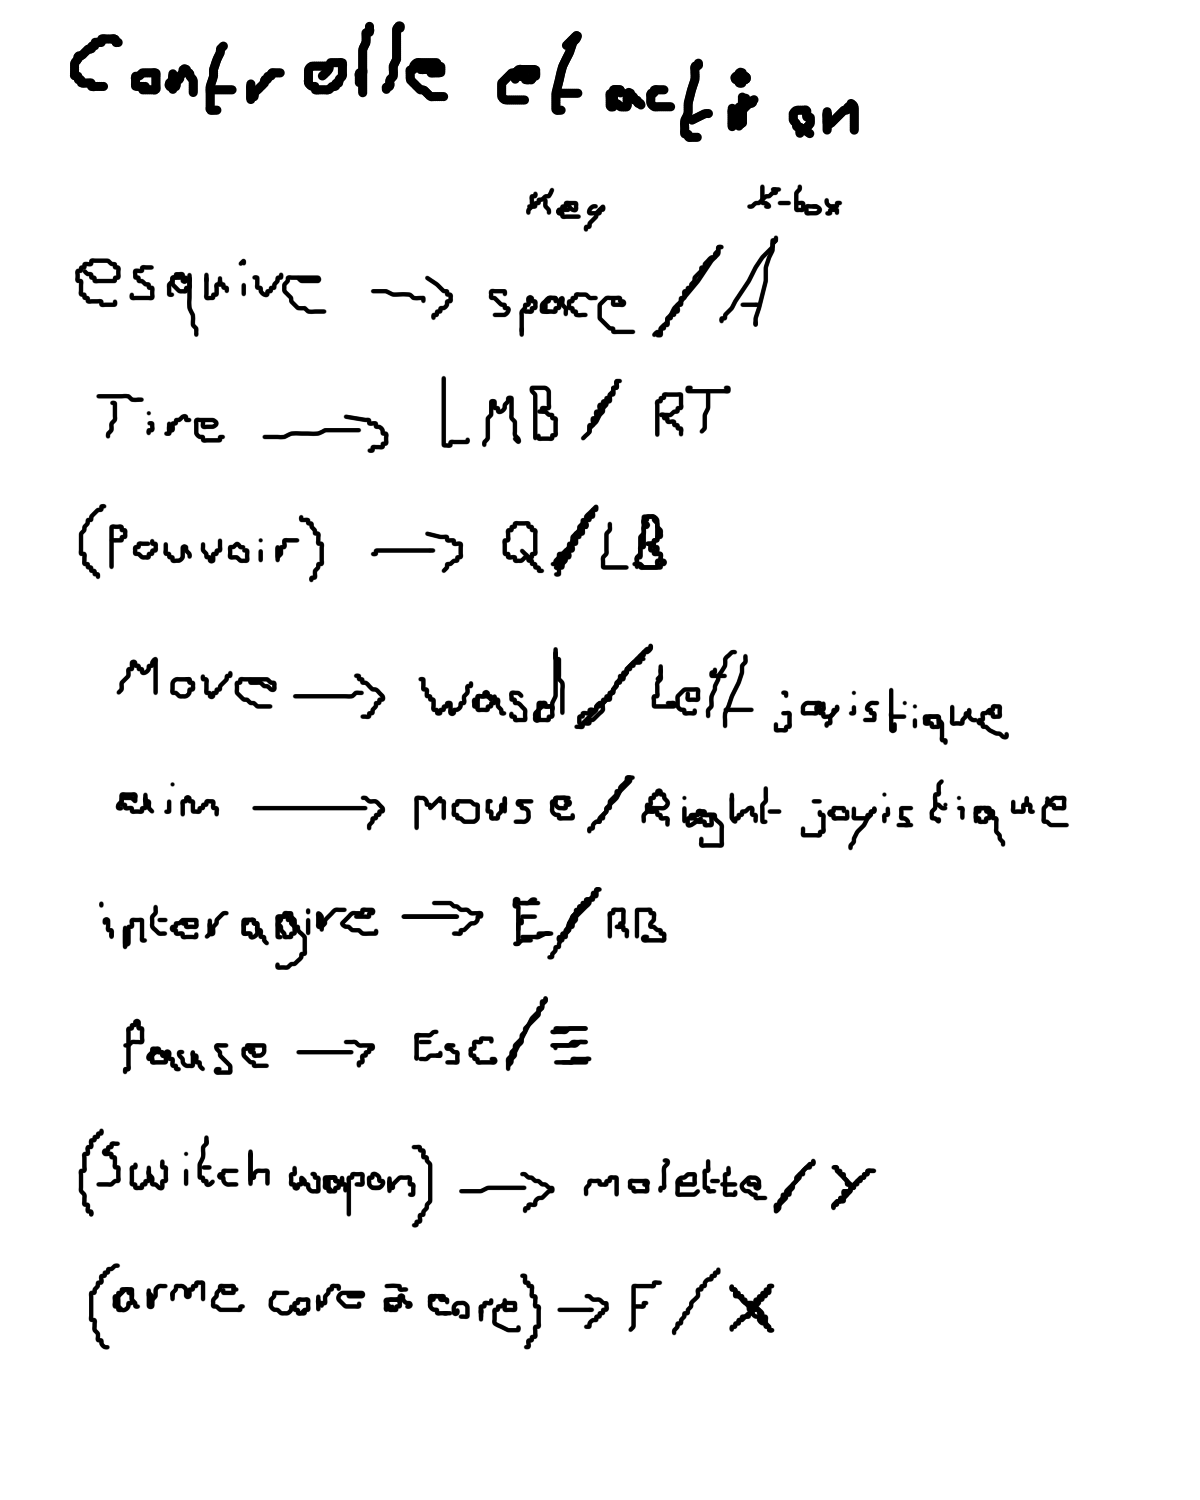 Controlle et action
Key X-box
esquive → space / A
Tire → LMB / RT
(Pouvoir) → Q/LB
Move → wasd/Left joyistique
aim → mouse/Right joyistique
interagire → E/RB
Pause → Esc/≡
(Switch wapon) → molette/Y
(arme core à core) → F/X